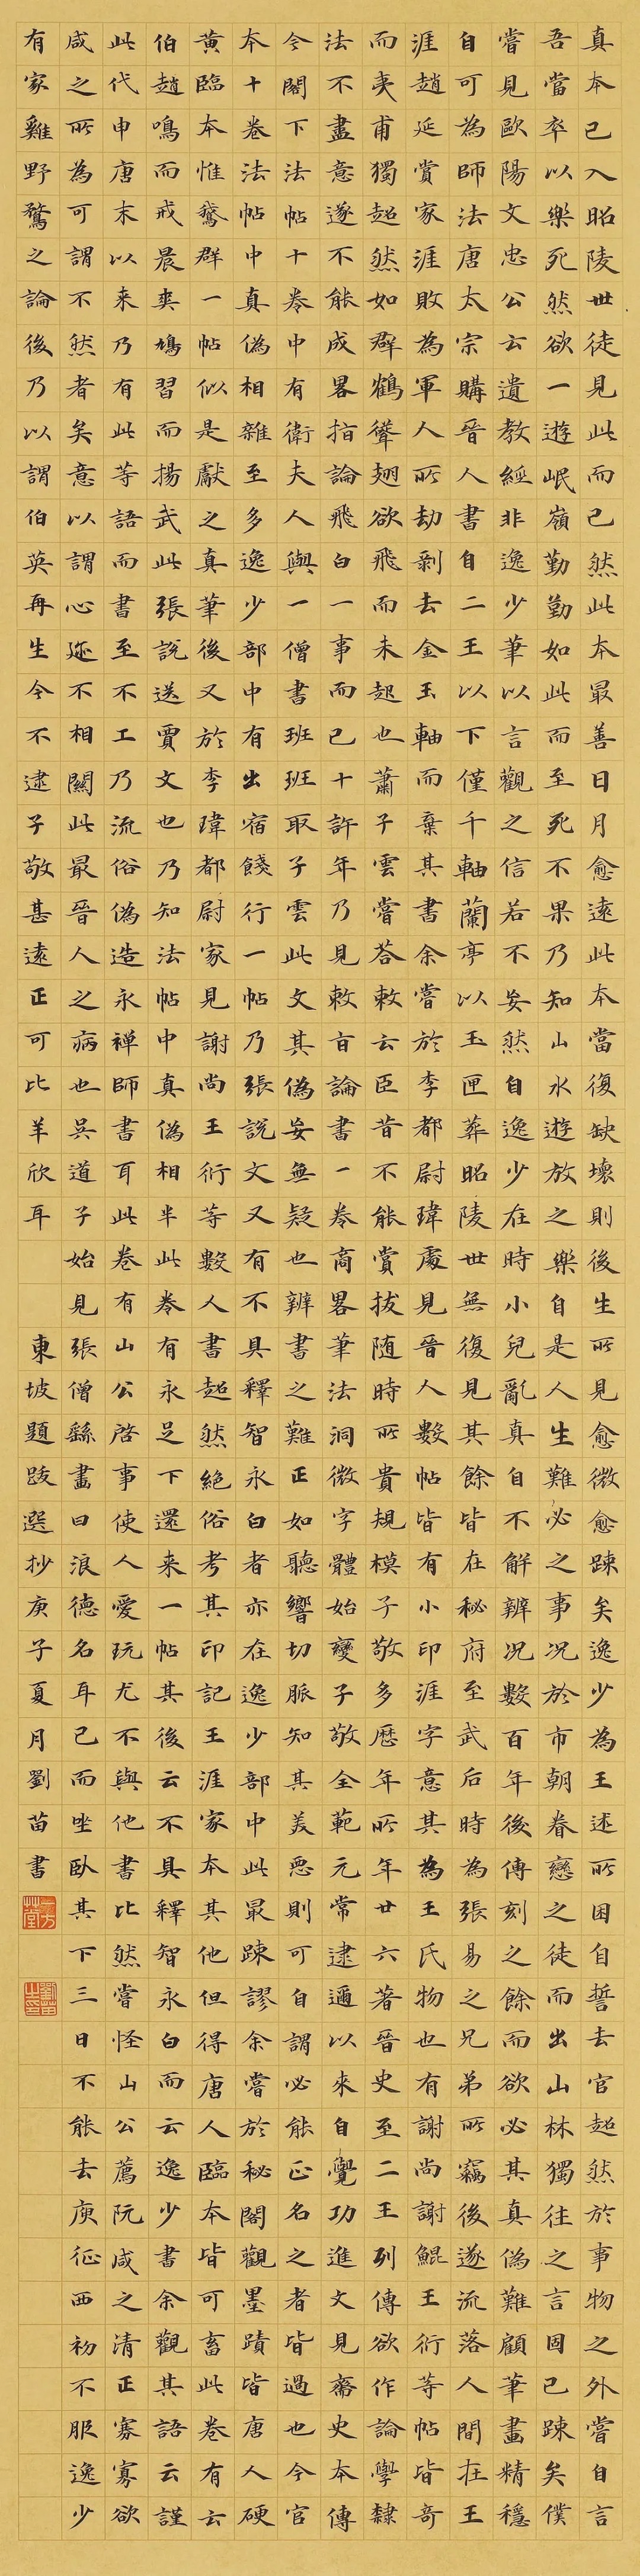 真本已入昭陵世徒見此而已然此本最善日月愈遠此本當復缺壞則後生所見愈微愈踈矣逸少為王述所困自誓去官超然於事物之外嘗自言
吾當卒以樂死然欲一遊岷嶺勤勤如此而至死不果乃知山水遊放之樂自是人生難必之事况於市朝眷戀之徒而出山林獨往之言固已踈矣僕
嘗見歐陽文忠公云遺教經非逸少筆以言觀之信若不妄然自逸少在時小兒亂真自不解辨况數百年後傳刻之餘而欲必其真偽難顧筆畫精穩
自可為師法唐太宗購晉人書自二王以下僅千軸蘭亭以玉匣葬昭陵世無復見其餘皆在秘府至武后時為張易之兄弟所竊後遂流落人間在王
涯趙延賞家涯敗為軍人所劫剽去金玉軸而棄其書余嘗於李都尉瑋處見晉人數帖皆有小印涯字意其為王氏物也有謝尚謝鯤王衍等帖皆奇
而夷甫獨超然如群鶴聳翅欲飛而未起也蕭子雲嘗荅敕云臣昔不能賞拔随時所貴規模子敬多歷年所年廿六著晉史至二王列傳欲作論學隸
法不盡意遂不能成畧指論飛白一事而已十許年乃見敕旨論書一卷商畧筆法洞微字體始變子敬全範元常逮邇以來自覺功進文見齋史本傳
今閣下法帖十卷中有衛夫人與一僧書班班取子雲此文其偽妄無疑也辨書之難正如聽響切脈知其美惡則可自謂必能正名之者皆過也今官
本十卷法帖中真偽相雜至多逸少部中有出宿餞行一帖乃張說文又有不具釋智永白者亦在逸少部中此最踈謬余嘗於秘閣觀墨蹟皆唐人硬
黄臨本惟鵞群一帖似是獻之真筆後又於李瑋都尉家見謝尚王衍等數人書超然絕俗考其印記王涯家本其他但得唐人臨本皆可畜此卷有云
伯趙鳴而戒晨爽鳩習而揚武此張說送賈文也乃知法帖中真偽相半此卷有永足下還来一帖其後云不具釋智永白而云逸少書余觀其語云謹
此代申唐末以来乃有此等語而書至不工乃流俗偽造永禅師書耳此卷有山公啓事使人愛玩尤不與他書比然嘗怪山公薦阮咸之清正寡欲
咸之所為可謂不然者矣意以謂心迹不相關此最晉人之病也吳道子始見張僧繇畫曰浪徳名耳已而坐卧其下三日不能去庾征西初不服逸少
有家雞野鶩之論後乃以謂伯英再生今不逮子敬甚遠正可比羊欣耳 東坡題跋選抄庚子夏月劉苗書